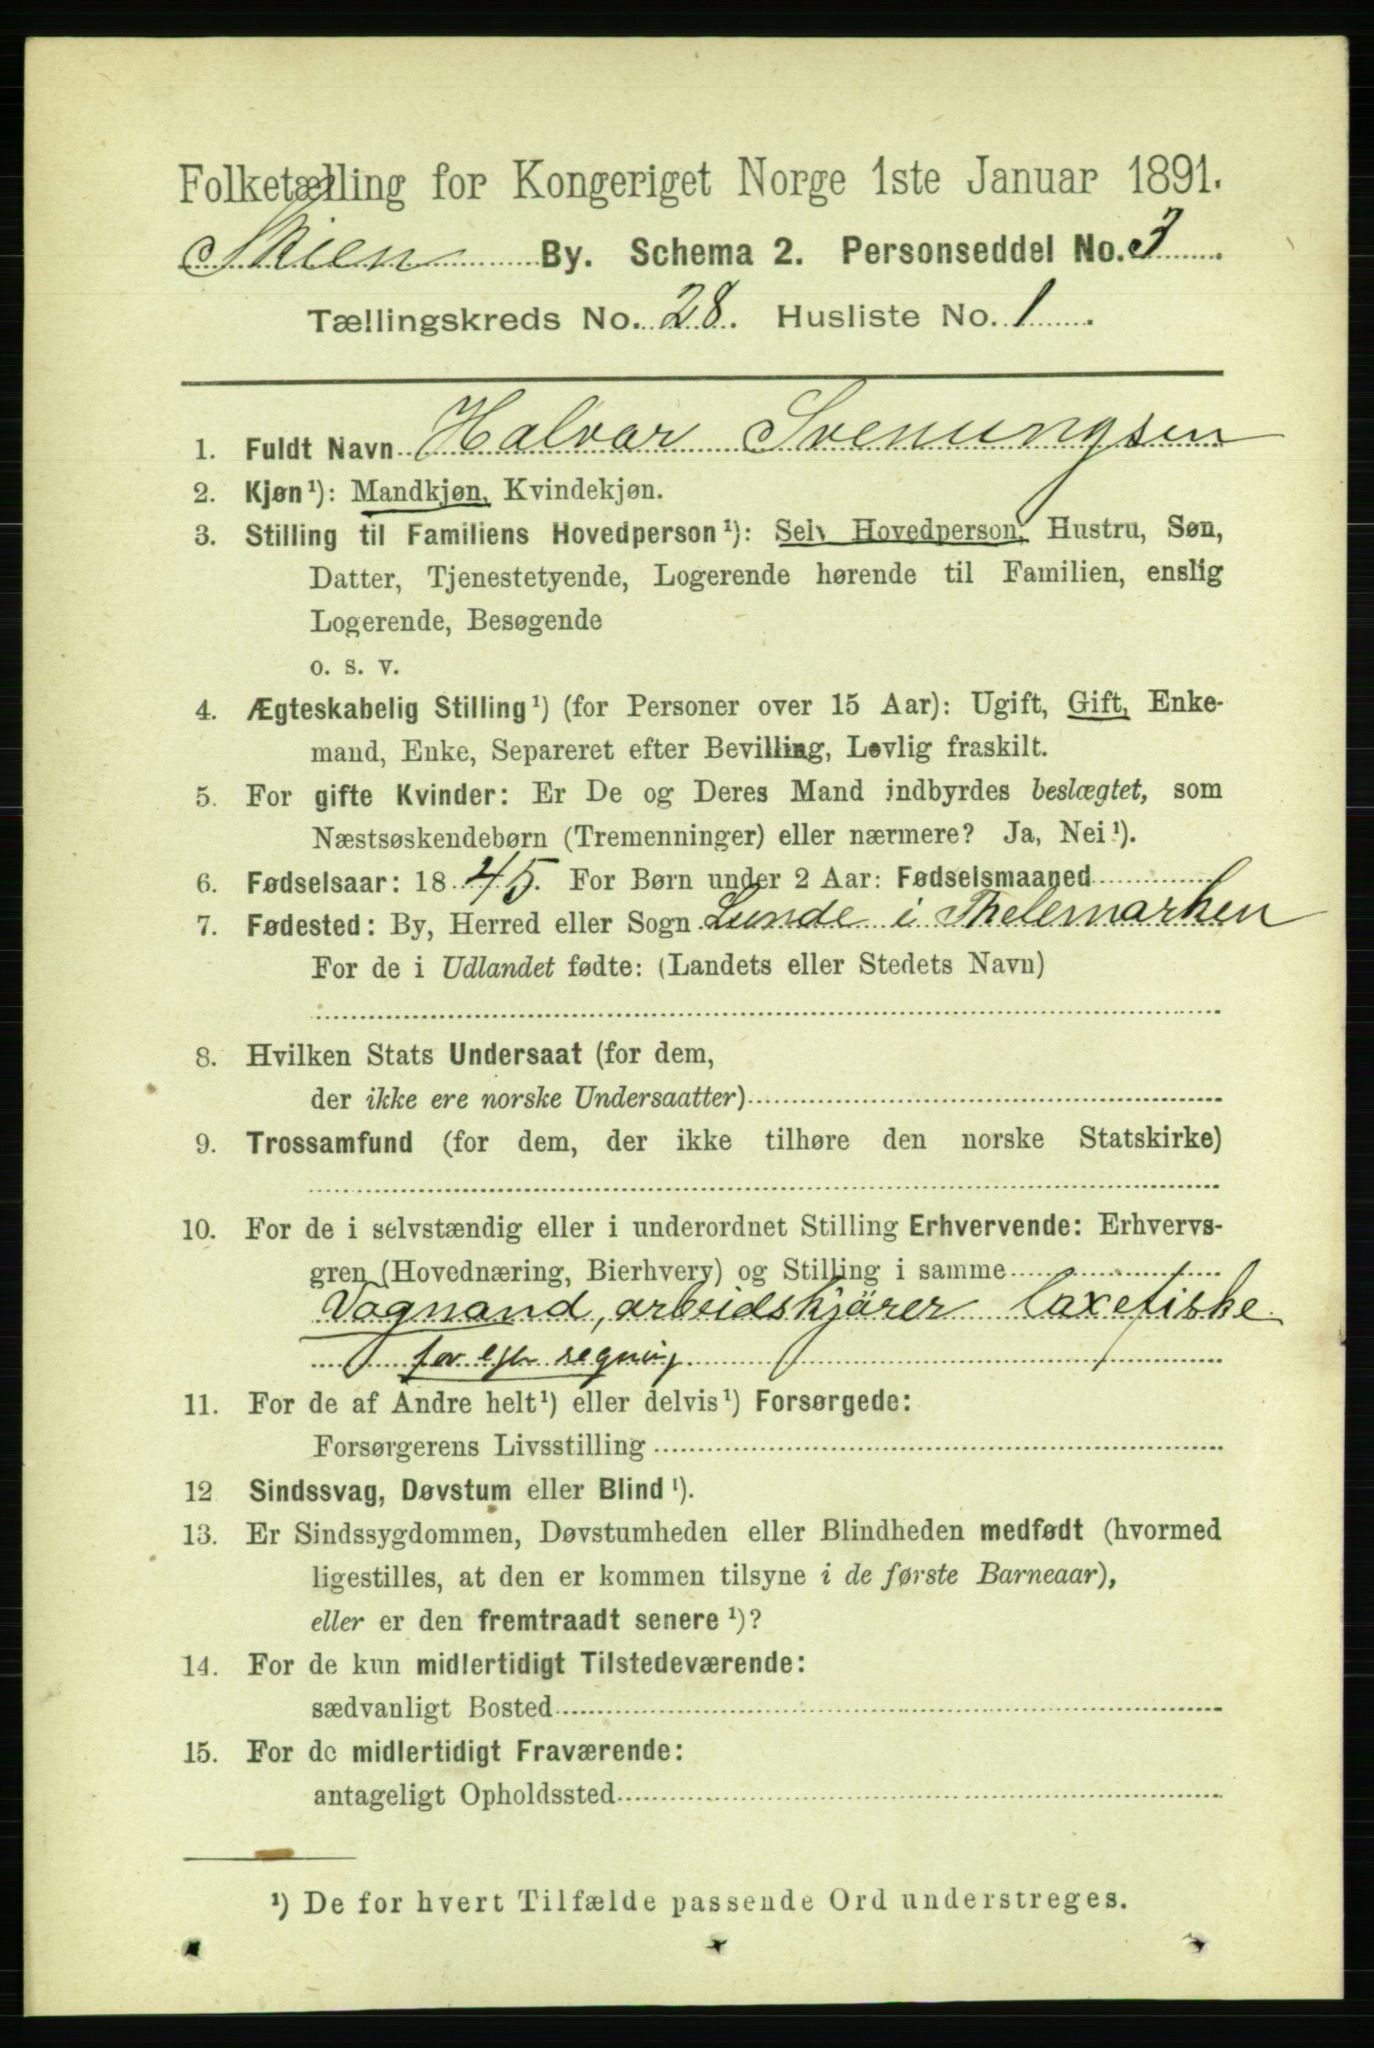 Folketælling for Kongeriget Norge 1ste Januar 1891.
Skien By. Schema 2. Personseddel No. 3
Tællingskreds No. 28. Husliste No. 1
1. Fuldt Navn Halvar Svenungsen
2. Kjøn¹): Mandkjøn, Kvindekjøn.
3. Stilling til Familiens Hovedperson¹): Selv Hovedperson, Hustru, Søn,
Datter, Tjenestetyende, Logerende hørende til Familien, enslig
Logerende, Besøgende
o. s. v.
4. Ægteskabelig Stilling¹) (for Personer over 15 Aar): Ugift, Gift, Enke-
mand, Enke, Separeret efter Bevilling, Lovlig fraskilt.
5. For gifte Kvinder: Er De og Deres Mand indbyrdes beslægtet, som
Næstsøskendebørn (Tremenninger) eller nærmere? Ja, Nei¹).
6. Fødselsaar: 1845. For Børn under 2 Aar: Fødselsmaaned
7. Fødested: By, Herred eller Sogn Lunde i Thelemarken
For de i Udlandet fødte: (Landets eller Stedets Navn)
8. Hvilken Stats Undersaat (for dem,
der ikke ere norske Undersaatter)
9. Trossamfund (for dem, der ikke tilhøre den norske Statskirke)
10. For de i selvstændig eller i underordnet Stilling Erhvervende: Erhvervs-
gren (Hovednæring, Bierhverv) og Stilling i samme
Vognand, arbeidskjörer laxefiske
for egen regning
11. For de af Andre helt¹) eller delvis¹) Forsørgede:
Forsørgerens Livsstilling
12 Sindssvag, Døvstum eller Blind¹).
13. Er Sindssygdommen, Døvstumheden eller Blindheden medfødt (hvormed
ligestilles, at den er kommen tilsyne i de første Barneaar),
eller er den fremtraadt senere¹)?
14. For de kun midlertidigt Tilstedeværende:
sædvanligt Bosted
15. For de midlertidigt Fraværende:
antageligt Opholdssted
¹) De for hvert Tilfælde passende Ord understreges.